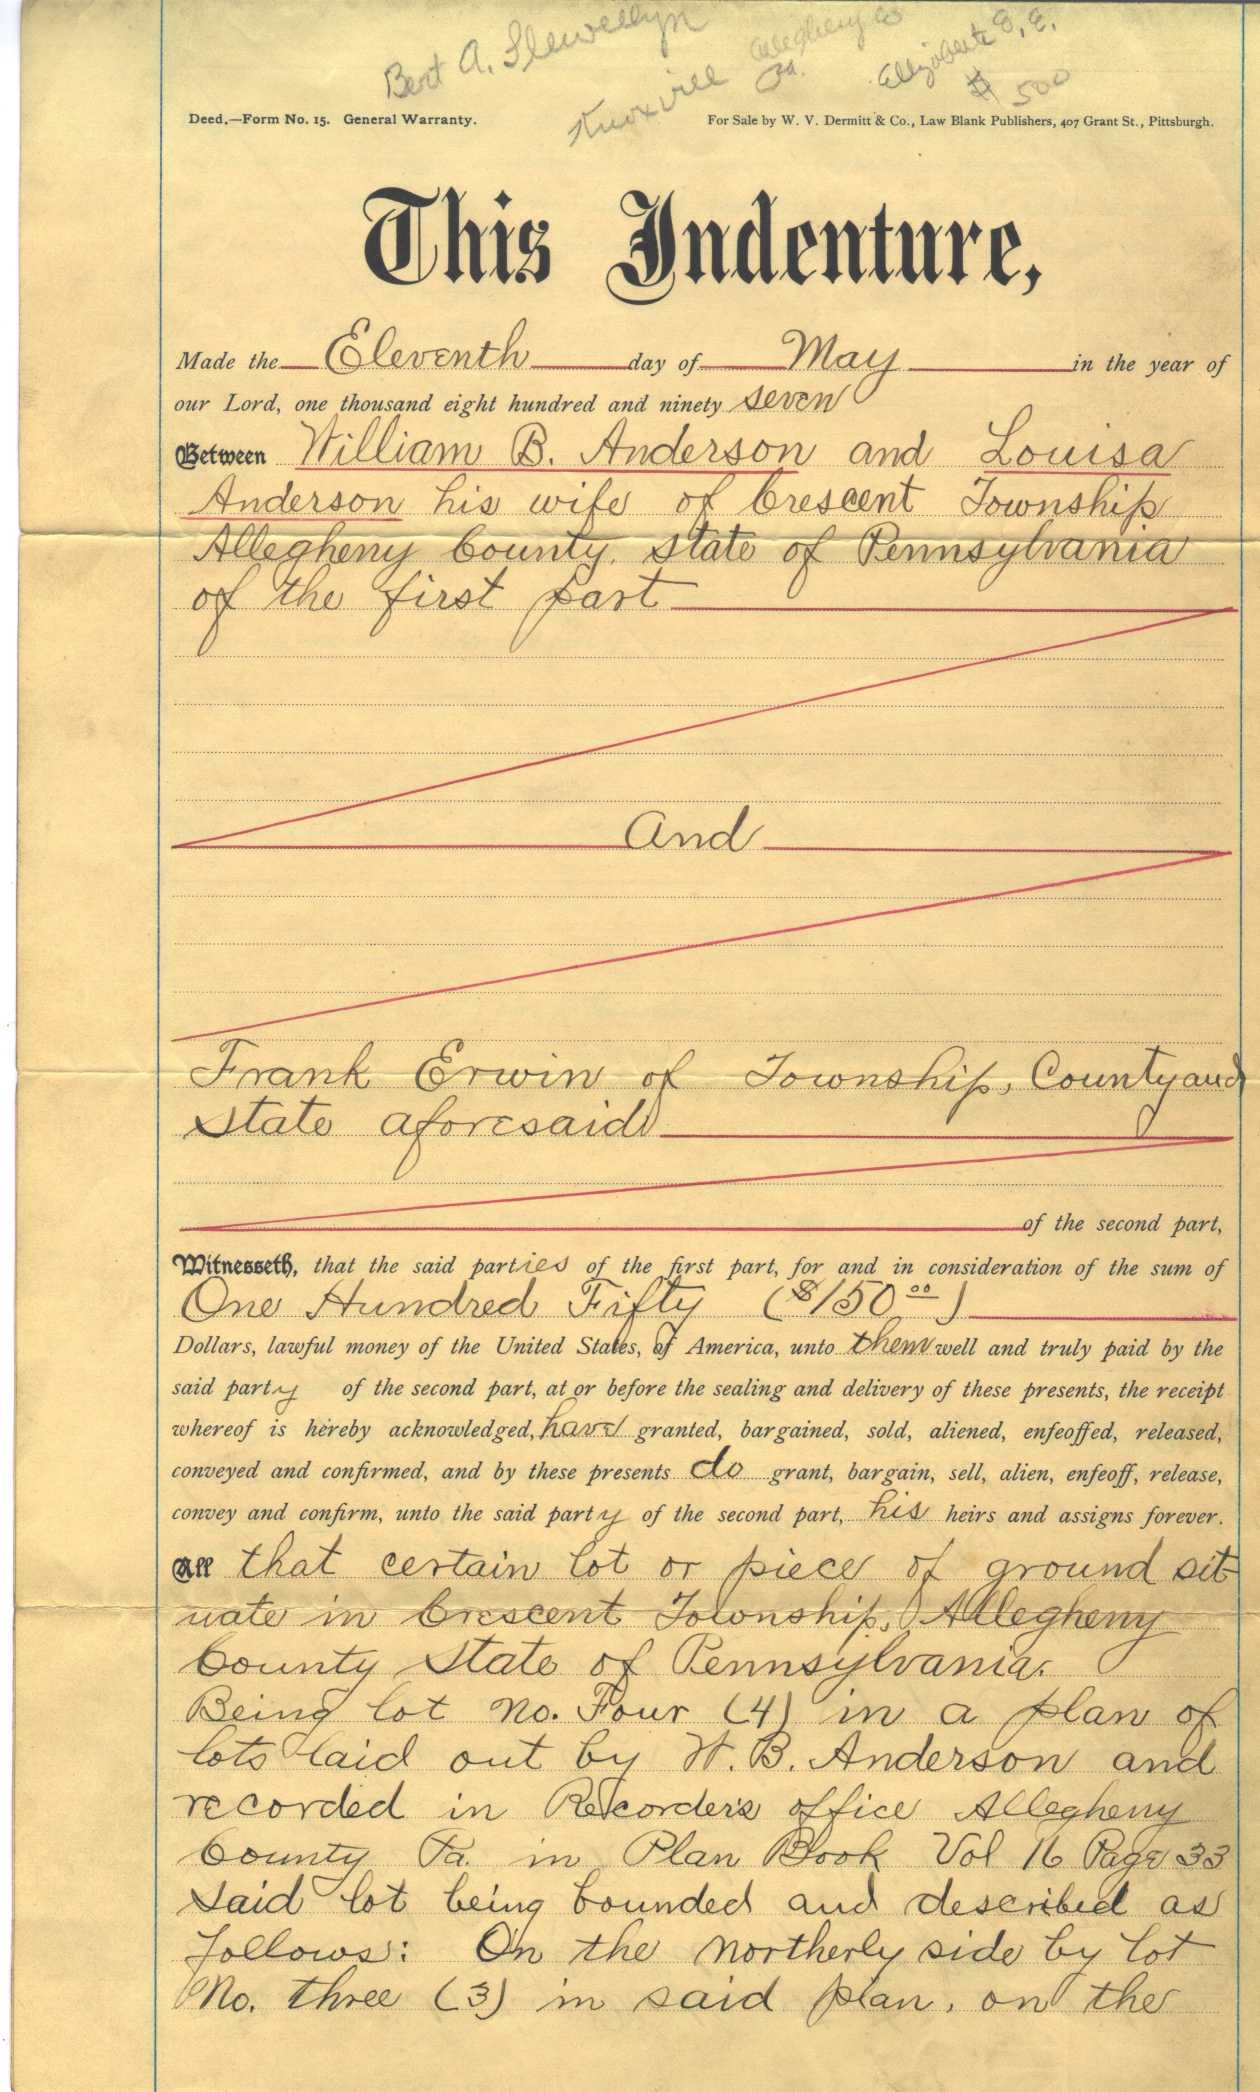 Bert A. Llewellyn
Knoxville Allegheny Co
Pa.
Elizabeth E. E.
$ 500
Deed.—Form No. 15. General Warranty.
For Sale by W. V. Dermitt & Co., Law Blank Publishers, 407 Grant St., Pittsburgh.
This Indenture,
Made the Eleventh day of May in the year of
our Lord, one thousand eight hundred and ninety seven
Between William B. Anderson and Louisa
Anderson his wife of Crescent Township
Allegheny County, state of Pennsylvania
of the first part
And
Frank Erwin of Township, County and
State aforesaid
of the second part,
Witnesseth, that the said parties of the first part, for and in consideration of the sum of
One Hundred Fifty ($150 00)
Dollars, lawful money of the United States, of America, unto them well and truly paid by the
said party of the second part, at or before the sealing and delivery of these presents, the receipt
whereof is hereby acknowledged, have granted, bargained, sold, aliened, enfeoffed, released,
conveyed and confirmed, and by these presents do grant, bargain, sell, alien, enfeoff, release,
convey and confirm, unto the said party of the second part, his heirs and assigns forever.
All that certain lot or piece of ground sit-
uate in Crescent Township, Allegheny
County State of Pennsylvania.
Being lot No. Four (4) in a plan of
lots laid out by W. B. Anderson and
recorded in Recorder's office Allegheny
County Pa. in Plan Book Vol 16 Page 33
Said lot being bounded and described as
follows: On the northerly side by lot
No. three (3) in said plan, on the